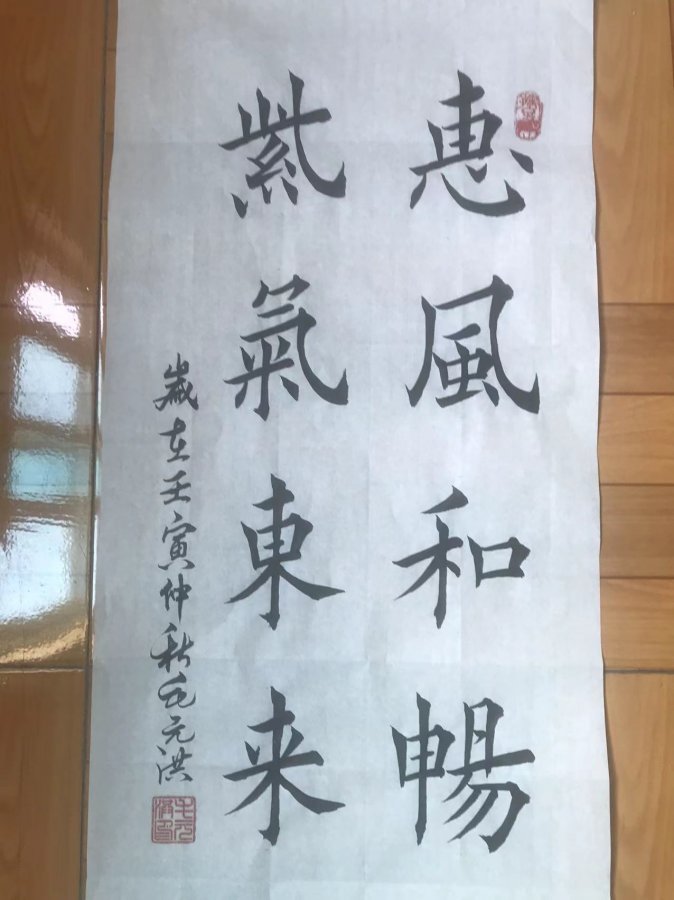 惠風和暢
紫氣東来
歲在壬寅仲秋毛元洪